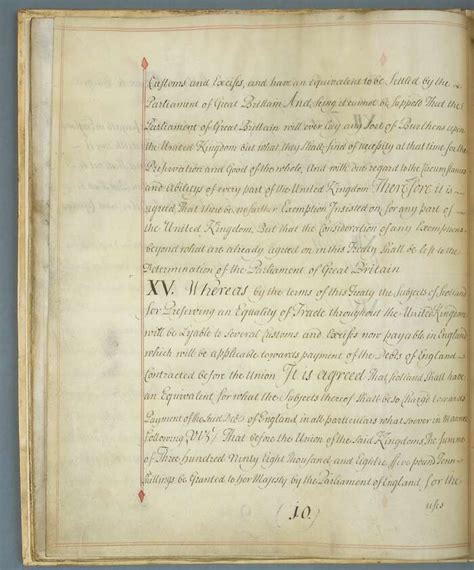 Customs and Excises, and have an Equivalent to be Settled by the
Parliament of Great Brittain And seing it cannot be supposed That the
Parliament of Great Brittain will ever lay any Sort of Burthens upon
the United Kingdom but what they Shall find of necessity at that time for the
Preservation and Good of the whole, And with due regard to the Circumstances
and abilitys of every part of the United Kingdom Therefore it is
agreed That there be no further Exemption Insisted on for any part of
the United Kingdom, But that the Consideration of any Exemptions
beyond what are already agreed on in this Treaty Shall be left to the
Determination of the Parliament of Great Britain
XV. Whereas by the terms of this Treaty the Subjects of Scotland
for Preserving an Equality of Trade throughout the United Kingdom
will be Lyable to Several Customs and Excises now payable in England
which will be applicable towards payment of the Debts of England
Contracted before the Union It is agreed That Scotland Shall have
an Equivalent for what the Subjects thereof Shall be so Charged towards
Payment of the said Debts of England in all particulars whatsoever in Manner
following Vizt That before the Union of the said Kingdoms The Summe
of Three Hundred Ninty Eight Thousand and Eightie ffive pound Tenn
Shillings be Granted to her Majesty by the Parliament of England for the
uses
(10)